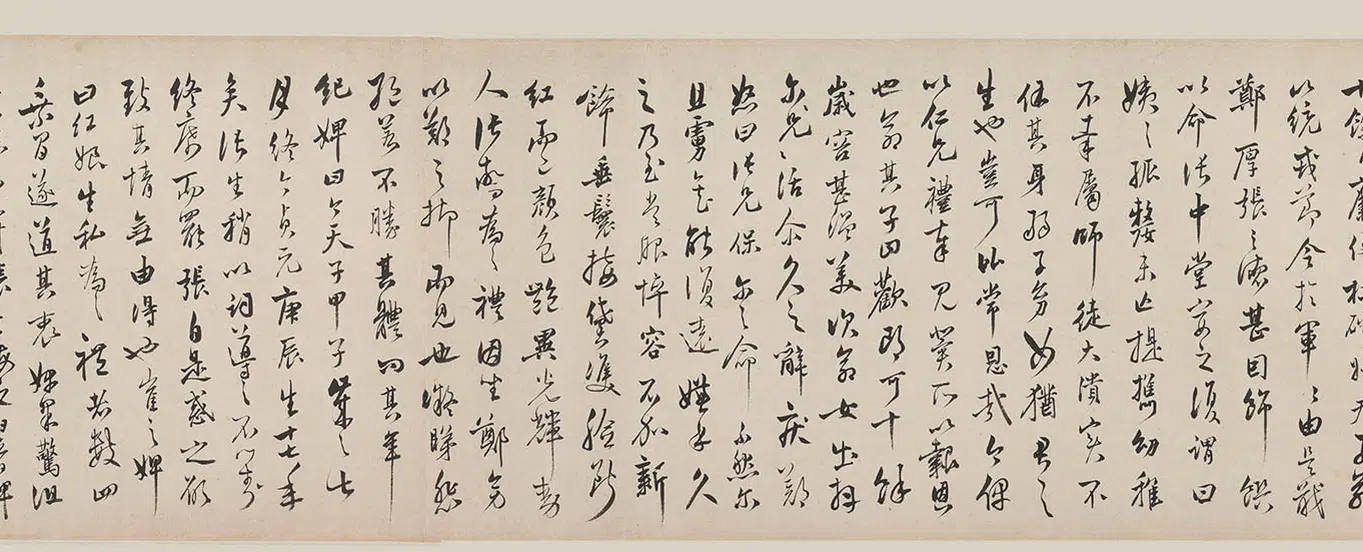 以統戎節令於軍々由是戢
鄭厚張之德甚因飾饌
以命張中堂宴之復謂曰
姨之孤嫠未亡提攜幼稚
不幸屬師徒大潰實不
保其身弱子幼女猶君之
生也豈可比常恩哉今俾
以仁兄禮奉見冀所以報恩
也命其子曰歡郎可十餘
歲容甚溫美次命女出拜
尔兄々活尔久之辭疾鄭
怒曰張兄保尔之命不然尔
且虜矣能復遠嫌乎久
之乃至常服悴容不加新
飾垂鬟接黛雙臉斷
紅而已顏色艷異光輝動
人張驚為之禮因坐鄭旁
以鄭之抑而見也凝睇怨
絕若不勝其體問其年
紀婢曰今天子甲子歲之七
月終今貞元庚辰生十七年
矣張生稍以詞導之不對
終席而罷張自是惑之欲
致其情無由得也崔之婢
曰紅娘生私為之禮者數四
乘間遂道其衷婢果驚沮